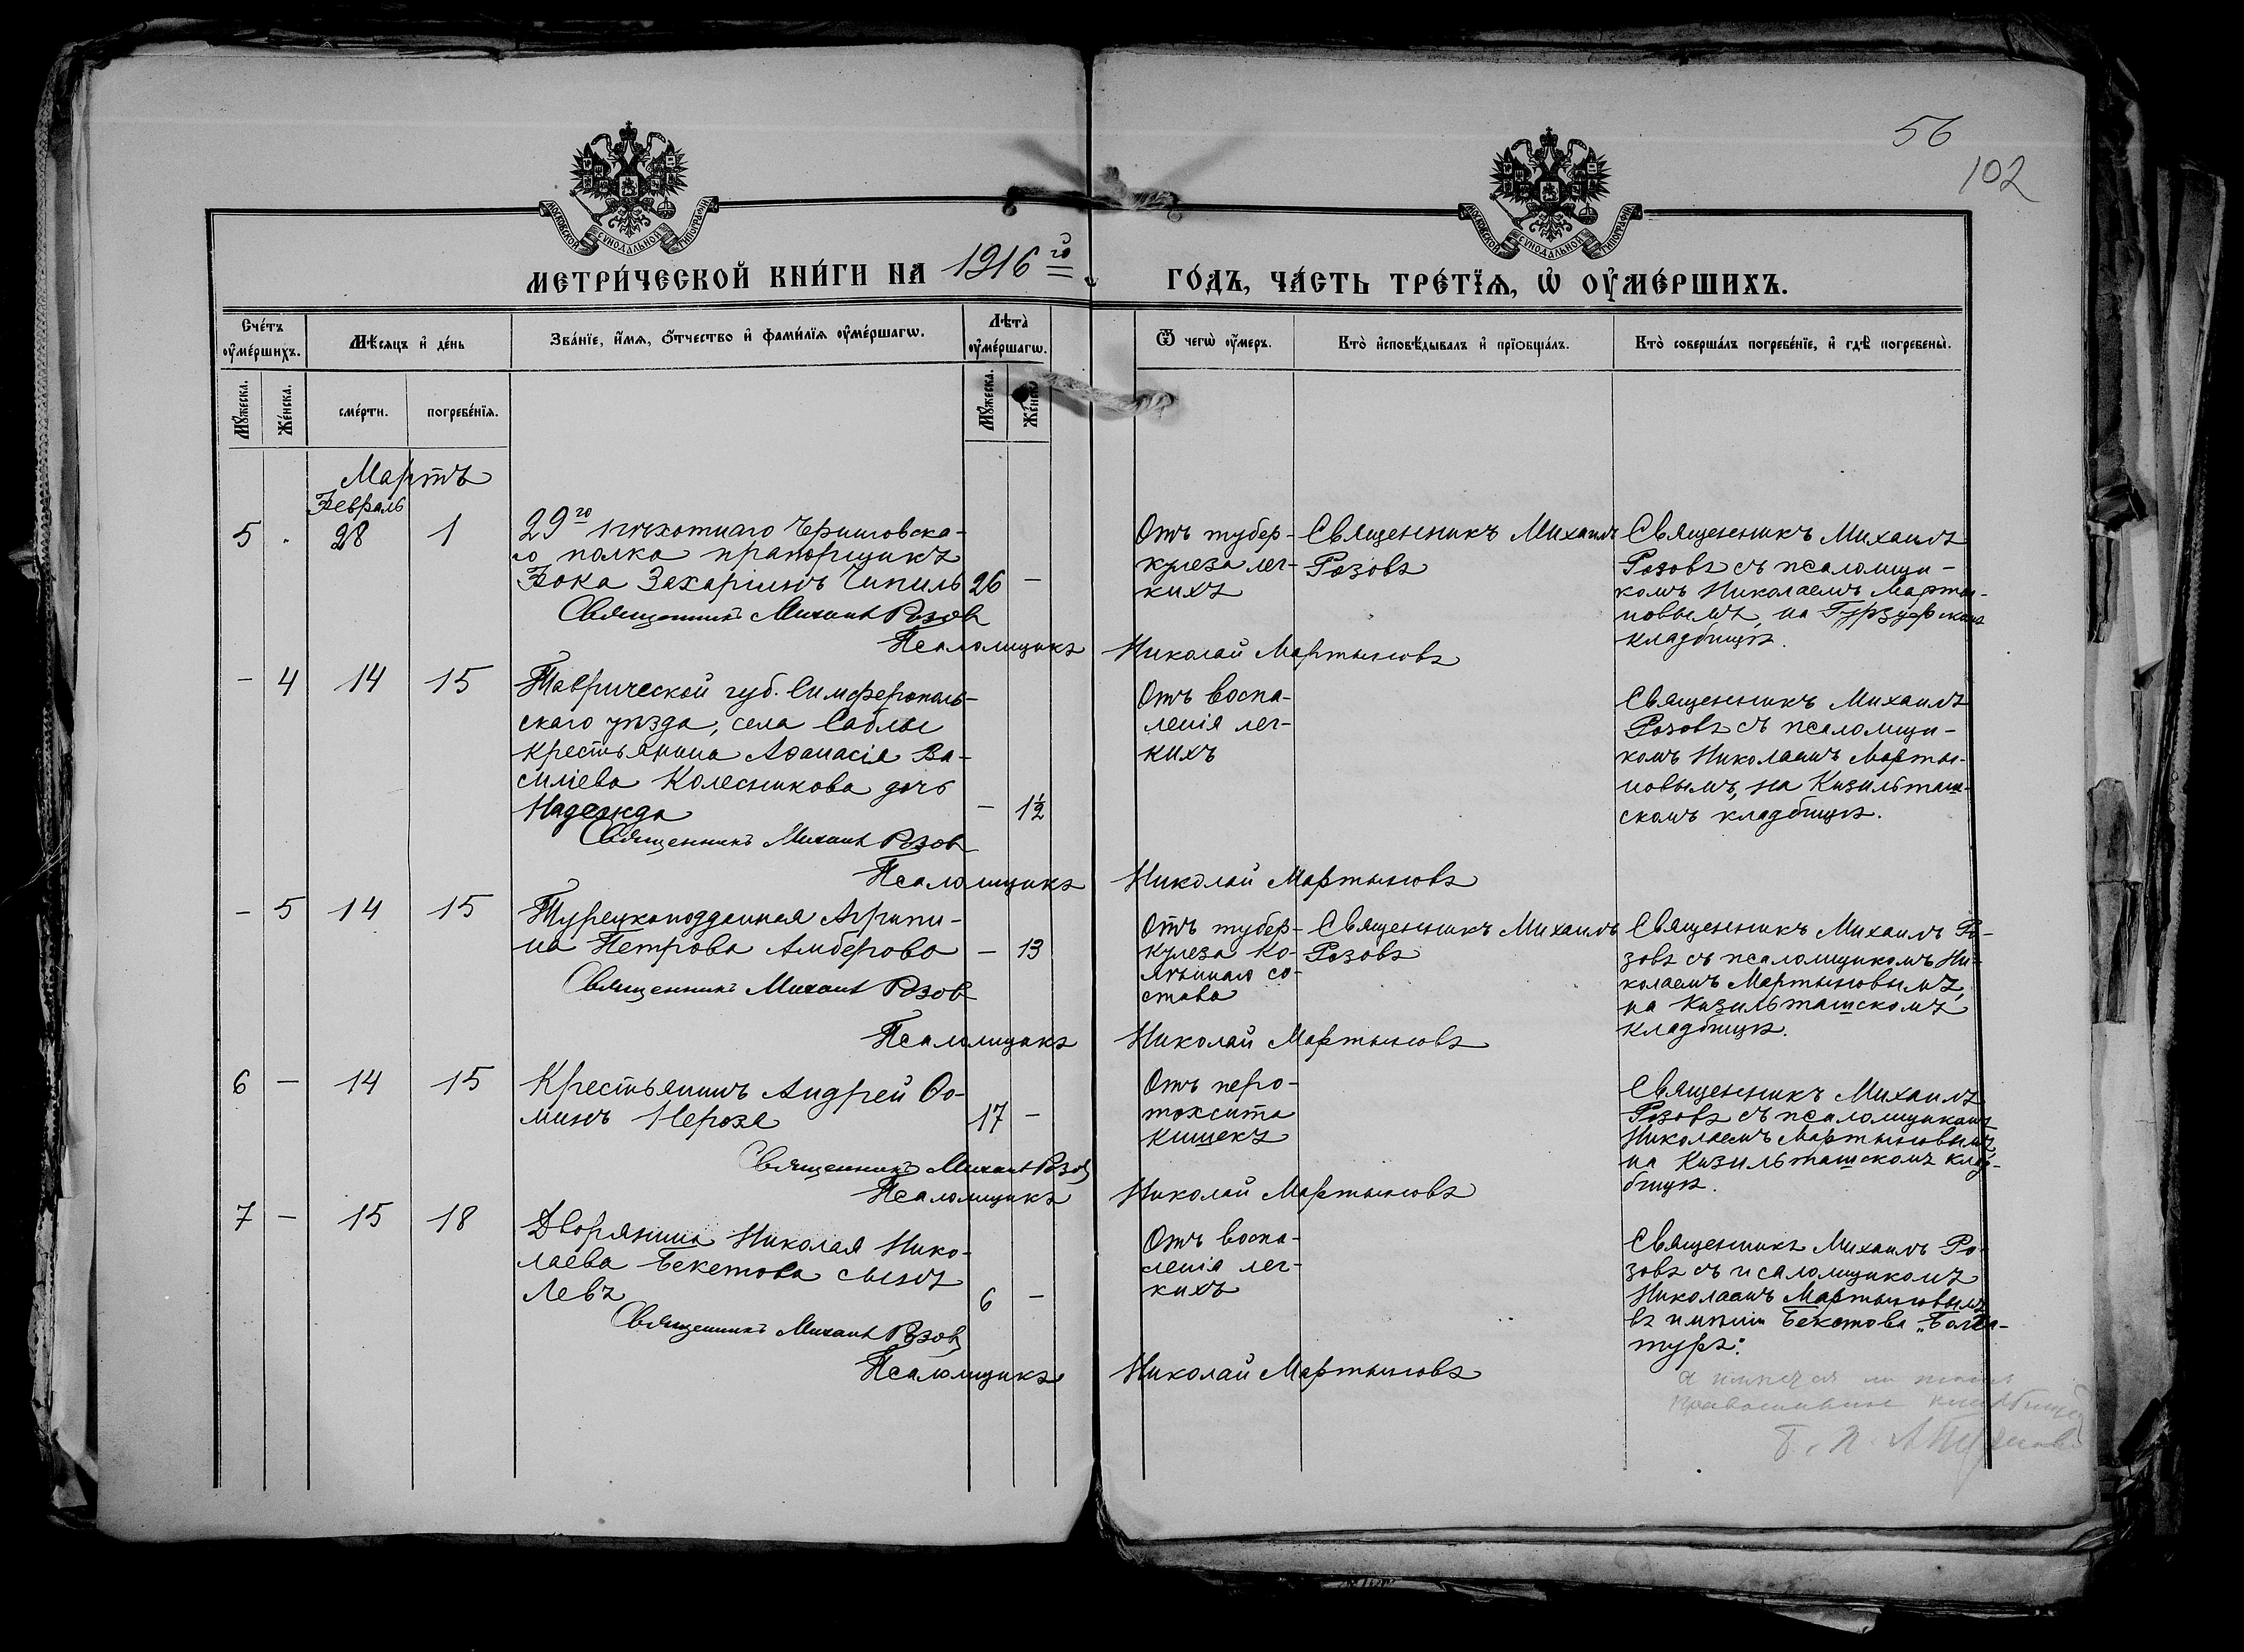 56
102
МОСКОВСКОЙ СѴНОДАЛЬНОЙ ТИПОГРАФІИ
МОСКОВСКОЙ СѴНОДАЛЬНОЙ ТИПОГРАФІИ
МЕТРИ́ЧЕСКОЙ КНИ́ГИ НА 1916го
ГО́ДЪ, ЧА́СТЬ ТРЕ́ТЇѦ, Ѡ҆ ОУ҆МЕ́РШИХЪ.
Сче́тъ оу҆ме́ршихъ.
Мѣ́сяцъ и҆ де́нь
Зва́нїе, и҆́мѧ, о҆́тчество и҆ фами́лїѧ оу҆ме́ршагѡ.
Лѣта̀ оу҆ме́ршагѡ.
Ѿ чегѡ̀ оу҆́меръ.
Кто̀ и҆сповѣ́дывалъ и҆ прїѻбща́лъ.
Кто̀ соверша́лъ погребе́нїе, и҆ гдѣ̀ погребены̀.
Мꙋ́жеска.
Же́нска.
сме́рти.
погребе́нїѧ.
Мꙋ́жеска.
Же́нска.
Мартъ
Февраль
5 . 28 1
29го пѣхотнаго Черниговска-
го полка прапорщикъ
Фока Захаріинъ Чипиль 26 –
Священникъ Михаилъ Розов
Псаломщикъ Николай Мартыновъ
Отъ тубер-
кулеза лег-
кихъ
Священникъ Михаилъ
Розовъ
Священникъ Михаилъ
Розовъ съ псаломщи-
комъ Николаемъ Марты-
новымъ, на Гурзуфскомъ
кладбищѣ.
– 4 14 15
Таврической губ. Симферополь-
скаго уѣзда, села Саблы
крестьянина Аѳанасія Ва-
силіева Колесникова дочь
Надежда – 1½
Священникъ Михаилъ Розов
Псаломщикъ Николай Мартыновъ
Отъ воспа-
ленія лег-
кихъ
Священникъ Михаилъ
Розовъ съ псаломщи-
комъ Николаемъ Марты-
новымъ, на Кизильташ-
скомъ кладбищѣ.
– 5 14 15
Турецкоподданная Агрипи-
на Петрова Амберова – 13
Священникъ Михаилъ Розов
Псаломщикъ Николай Мартыновъ
Отъ тубер-
кулеза ко-
лѣннаго со-
става
Священникъ Михаилъ
Розовъ
Священникъ Михаилъ Ро-
зовъ съ псаломщикомъ Ни-
колаемъ Мартыновымъ,
на Кизильташскомъ
кладбищѣ.
6 – 14 15
Крестьянинъ Андрей Ѳо-
минъ 17 –
Священникъ Михаилъ Розов
Псаломщикъ Николай Мартыновъ
Отъ
кишекъ
Священникъ Михаилъ
Розовъ съ псаломщикомъ
Николаемъ Мартыновымъ
на Кизильташскомъ клад-
бищѣ.
7 – 15 18
Дворянина Николая Нико-
лаева Бекетова сынъ
Левъ 6 –
Священникъ Михаилъ Розов
Псаломщикъ Николай Мартыновъ
Отъ воспа-
ленія лег-
кихъ
Священникъ Михаилъ Ро-
зовъ съ псаломщикомъ
Николаемъ Мартыновымъ
въ имѣніи Бекетова